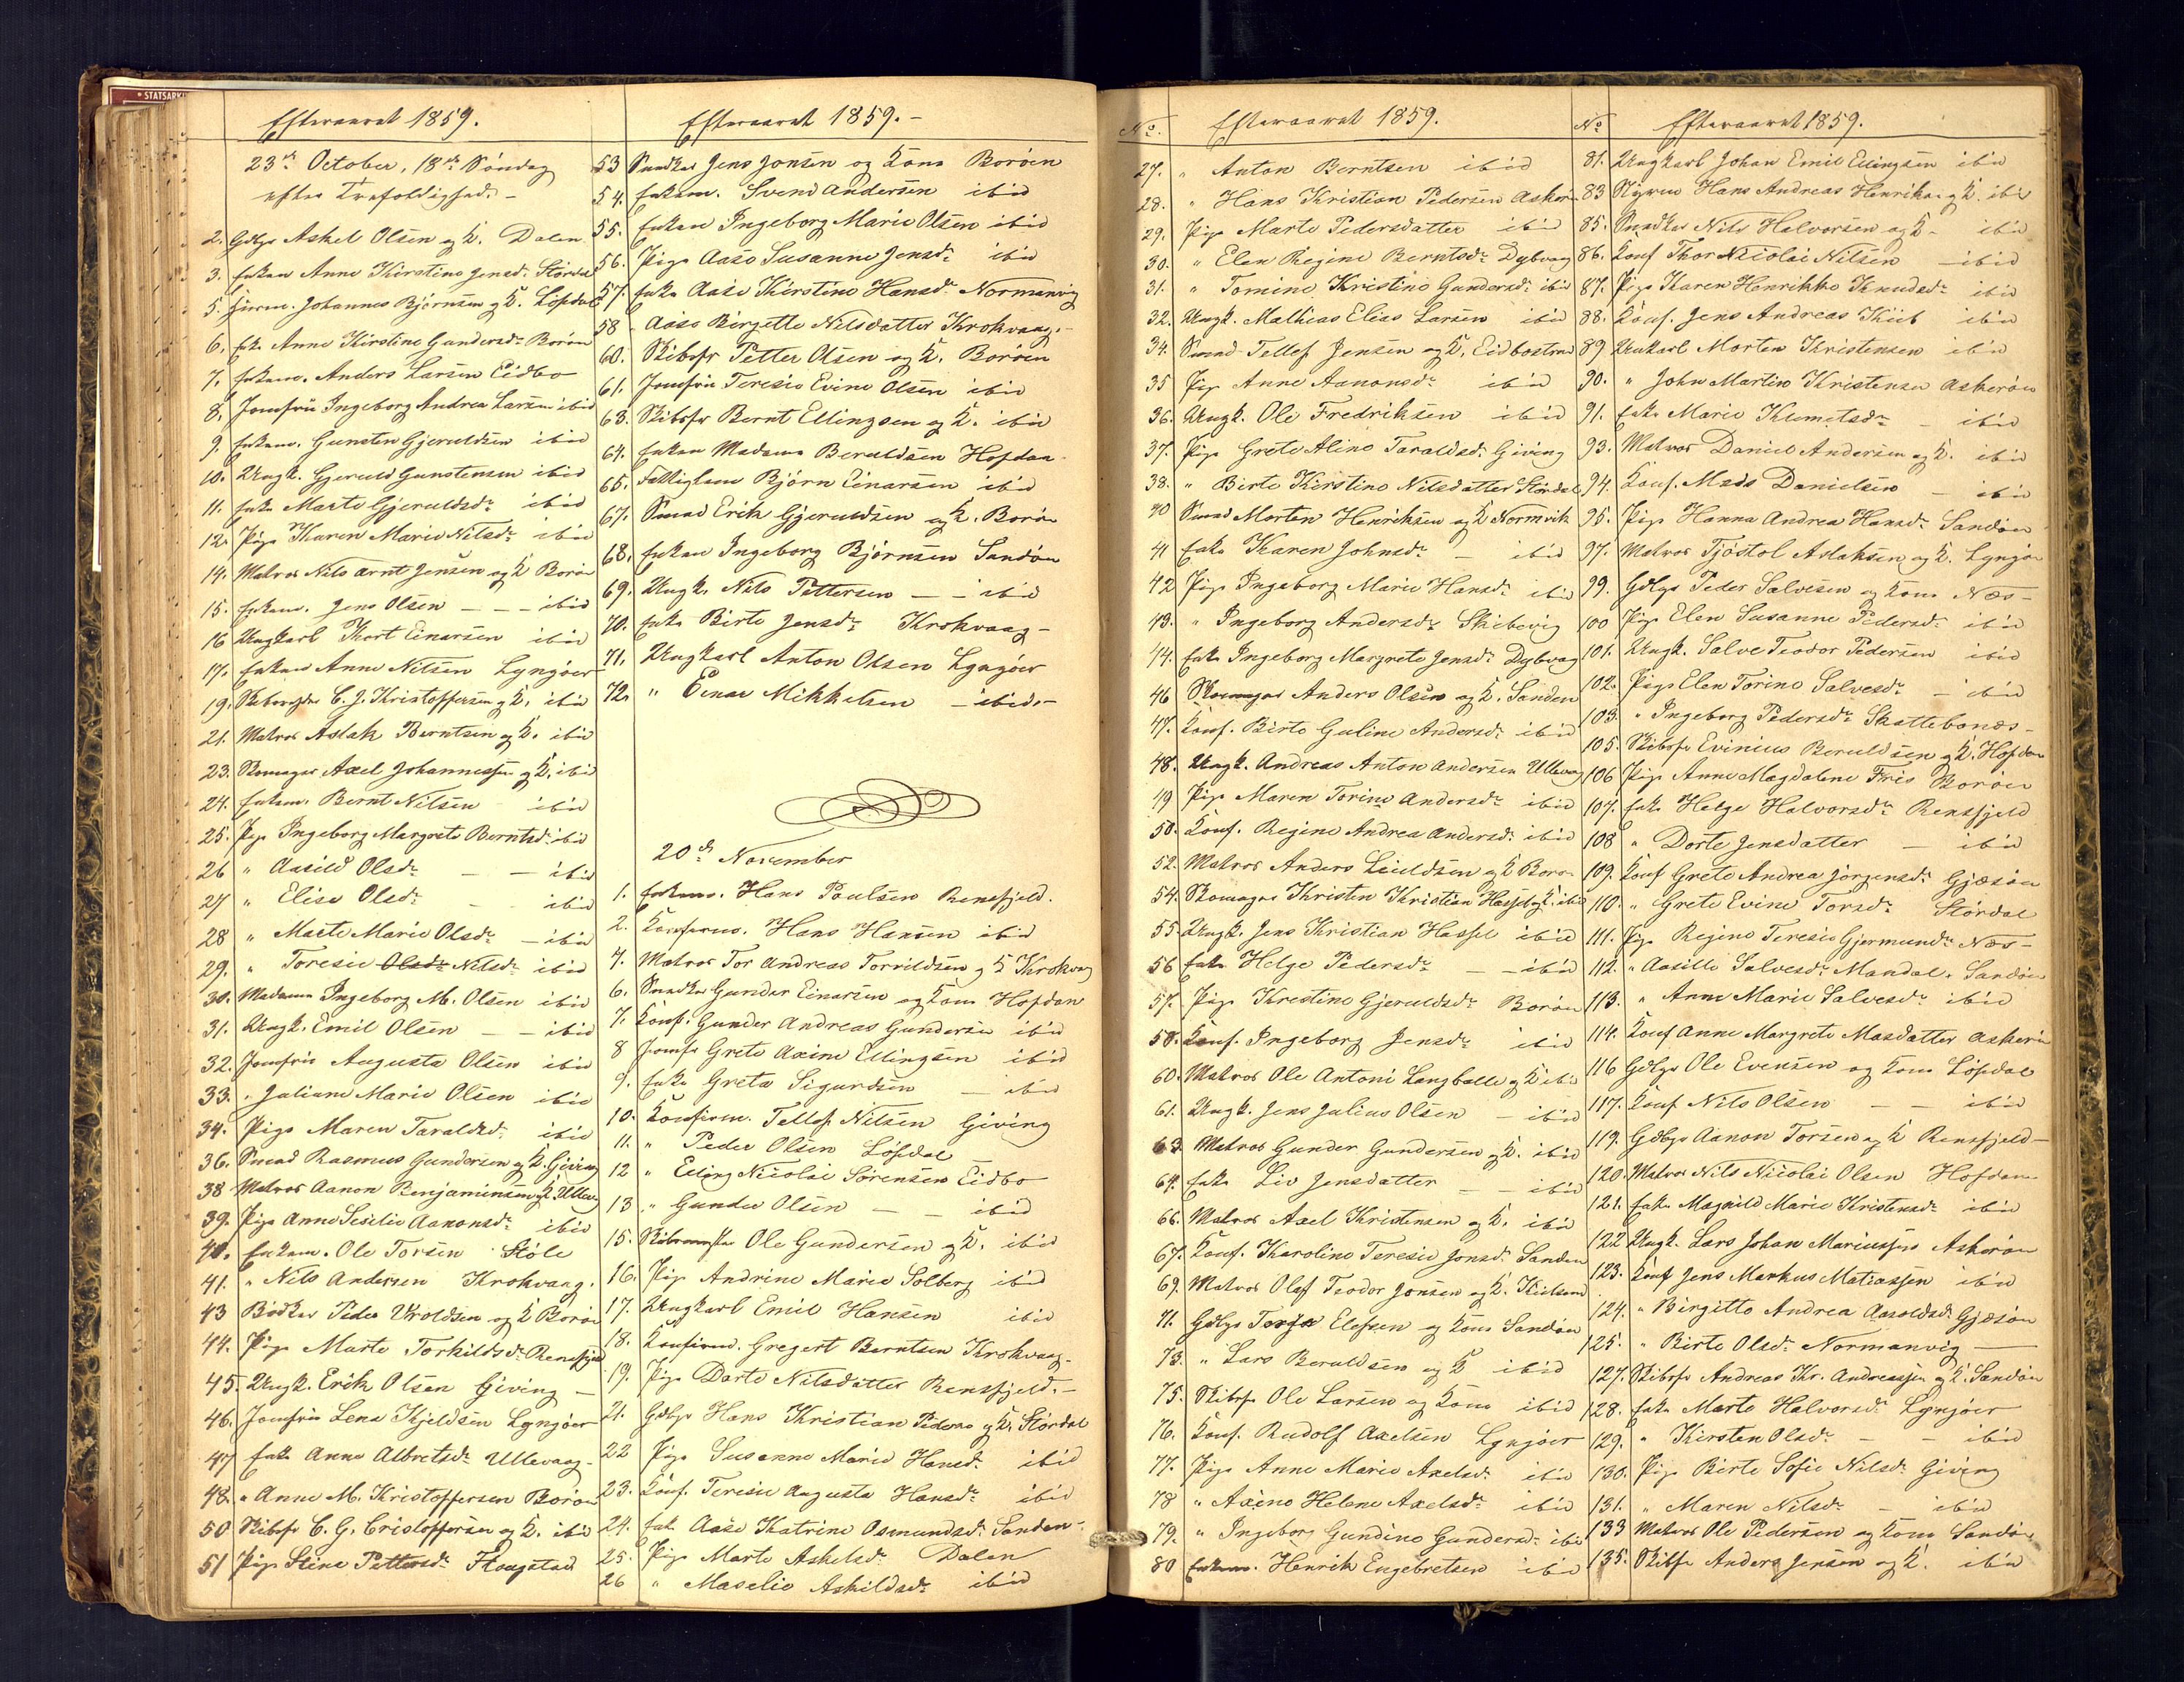 STATSARK
Efteraaret 1859.
23de October, 18de Söndag
efter Trefoldighed. -
2. Gdbr Askel Olsen og K. Dalen
3. Enken Anne Kirstine Jensdr Stördal
5. Johannes Björnsen og K. Löfdal
6. Enke Anne Kirstine Gundersdr Boröen
7. Enkem. Anders Larsen Eidbo
8. Jomfru Ingeborg Andrea Larsen ibid
9. Enkem. Gunsten Gjeruldsen ibid
10. Ungk. Gjeruld Gunstensen ibid
11. Enke Marte Gjeruldsdr ibid
12. Pige Karen Marie Nilsdr ibid
14. Matros Nils Arnt Jensen og K Boröe
15. Enkem. Jens Olsen - - - ibid
16 Ungkarl Kort Einarsen ibid
17. Enken Anne Nilsen Lyngöer
19. C. J. Kristoffersen og K. ibid
21. Matros Aslak Berntsen og K. ibid
23. Skomager Axel Johannessen og K. ibid
24. Enkem. Bernt Nilsen ibid
25. Pige Ingeborg Margrete Berntsd. ibid
26 " Aasild Olsdr - - ibid
27 " Elise Olsdr - ibid
28 " Marte Marie Olsdr - ibid
29. " Toresie Olsdr Nilsdr ibid
30. Madame Ingeborg M. Olsen ibid
31. Ungk. Emil Olsen - - ibid
32. Jomfru Augusta Olsen ibid
33. " Juliane Marie Olsen ibid
34. Pige Maren Taraldsd. ibid
36. Smed Rasmus Gundersen og K. Giving
38 Matros Aanon Benjaminsen og K. Ullev
39. Pige Anne Sesilie Aanonsdr ibid
40. Enkem. Ole Torsen Stöle
41. " Nils Andersen Krokvaag.
43 Bödker Peder Wroldsen og K Boröe
44. Pige Marte Torkildsdr Rensfjeld
45. Ungk. Erik Olsen Giving -
46. Jomfru Lena Kjeldsen Lyngöer
47 Enke Anne Albretsdr Ullevaag -
48. " Anne M. Kristoffersen Boröen
50 Skibsfr C. G. Cristoffersen og K. ibid
51 Pige Stine Pettersdr Haugstad
Efteraaret 1859. -
53 Snedker Jens Jonsen og Kone Boröen
54. Enkem. Svend Andersen ibid
55. Enken Ingeborg Marie Olsen ibid
56. Pige Aase Susanne Jensdr ibid
57. Enke Aase Kirstine Hansdr Normanvig
58 - Aase Birgette Nilsdatter Krokvaag. -
60. Skibsfr Petter Olsen og K. Boröen
61. Jomfru Teresie Evine Olsen ibid
63. Skibsfr Bernt Ellingsen og K. ibid
64. Enken Madame Beruldsen Hofdan
65. Fattiglem Björn Einarsen ibid
67. Smed Erik Gjeruldsen og K. Boröe
68. Enken Ingeborg Björnsen Sandöen
69. Ungk. Nils Pettersen - - ibid
70. Enke Birte Jensdr Krokvaag -
71. Ungkarl Anton Olsen Lyngöer
72. " Einar Mikkelsen - ibid. -
20de November
1. Enkem. Hans Poulsen Rensfjeld.
2. Konfirm. Hans Hansen ibid
4. Matros Tor Andreas Torvildsen og K Krokvag
6. Snedker Gunder Einarsen og Kone Hofdan
7. Konf. Gunder Andreas Gundersen ibid
8 Jomfr Grete Axine Ellingsen ibid
9. Enke Greta Sigurdsen - ibid
10. Konfirm. Tellef Nilsen Giving
11. " Peder Olsen Löfdal
12 " Elling Nicolai Sörensen Eidbo
13 " Gunder Olsen - - ibid
15. Ole Gundersen og K. ibid
16. Pige Andrine Marie Solberg ibid
17. Ungkarl Emil Hansen ibid
18. Konfirm. Gregert Berntsen Krokvaag -
19. Pige Dorte Nilsdatter Rensfjeld. -
21. Gdbr Hans Kristian Peders. og K. Stördal
22 Pige Susanne Marie Hansd. ibid
23. Konf. Teresie Augusta Hansdr ibid
24. Enk. Aase Katrine Osmundsdr Sanden -
25. Pige Marte Askelsdr Dalen
26 " Maselie Askildsdr ibid
No. Efteraaret 1859.
27. " Anton Berntsen ibid
28. " Hans Kristian Pedersen Askerö
29. Pige Marte Pedersdatter ibid
30. " Elen Regine Berntsdr Dybvag
31. " Tomine Kristine Gundersdr ibid
32. Ungk. Mathias Elias Larsen ibid
34. Smed Tellef Jensen og K. Eidbostrand
35 Pige Anne Aanonsdr ibid
36. Ungk. Ole Fredriksen ibid
37. Pige Grete Aline Taraldsd. Giving
38. " Birte Kirstine Nilsdatter Stördal
40 Smed Morten Henriksen og K Normvik
41 Enke Karen Johnsdr - ibid
42 Pige Ingeborg Marie Hansdr ibid
43. " Ingeborg Andersdr Skibevig
44. Enke Ingeborg Margrete Jensdr Dybvag
46 Skomager Anders Olsen og K. Sanden
47. Konf. Birte Guline Andersdr ibid
48. Ungk. Andreas Anton Andersen Ullevag
49 Pige Maren Torine Andersdr ibid
50. Konf. Regine Andrea Andersdr ibid
52. Matros Anders Leuldsen og K Borö
54. Skomager Kristen Kristian Hassel og K. ibid
55. Ungk. Jens Kristian Hassel ibid
56 Enke Helge Pedersdr - - ibid
57. Pige Kristine Gjeruldsdr Boröen
58. Konf. Ingeborg Jensdr ibid
60. Matros Ole Antoni Langballe og K ibid
61. Ungk. Jens Julius Olsen - ibid
63. Matros Gunder Gundersen og K. ibid
64. Enke Liv Jensdatter - - ibid
66. Matros Axel Kristensen og K. ibid
67. Konf. Karoline Teresie Jonsd. Sanden
69. Matros Olaf Teodor Jonsen og K. Kielsund
71. Gdbr Terje Elefsen og Kone Sandöen
73. " Lars Beruldsen og K ibid
75. Skibsfr Ole Larsen og Kone ibid
76. Konf. Rudolf Axelsen Lyngöer
77. Pige Anne Marie Axelsd. ibid
78 " Axine Helene Axelsdr ibid
79. " Ingeborg Gundine Gundersd. ibid
80 Enkem. Henrik Engebretsen ibid
No Efteraaret 1859.
81. Ungkarl Johan Emil Ellingsen ibid
83 Hans Andreas Henriks. og K. ibid
85. Snedker Nils Halvorsen og K. - ibid
86. Konf Thor Nicolai Nilsen - ibid
87. Pige Karen Henrikke Knudsdr ibid
88. Konf. Jens Andreas Kiil ibid
89 Unkarl Morten Kristensen ibid
90. " John Martin Kristensen Askeröen
91. Enke Marie Klemetsdr - ibid
93. Matros Daniel Andersen og K. ibid
94. Konf. Mads Danielsen - ibid
95. Pige Hanna Andrea Hansdr Sandöen
97. Matros Tjöstol Aslaksen og K. Lyngör
99. Gdbr Peder Salvesen og Kone Næs -
100 Pige Elen Susanne Pedersdr ibid
101. Ungk. Salve Teodor Pedersen ibid
102. Pige Elen Torine Salvesdr - ibid
103. " Ingeborg Pedersdr Skottebonæs -
105. Skibsfr Evinius Beruldsen og K. Hofdan
106 Pige Anne Magdalene Friis Boröen
107. Enke Helge Halvorsdr Rensfjeld
108 " Dorte Jensdatter - ibid
109. Konf Grete Andrea Jörgensdr Gjæsöen
110. " Grete Evine Torsdr Stördal
111. Pige Regine Teresie Gjermundr Næs -
112. " Aasille Salvesdr Mandal. Sandöen
113. " Anne Marie Salvesdr ibid
114. Konf Anne Margrete Masdatter Askerö
116 Gdbr Ole Evensen og Kone Löfdal
117. Konf Nils Olsen - - ibid
119. Gdbr Aanon Torsen og K Rensfjeld -
120. Matros Nils Nicolai Olsen Hofdan
121. Enke Magnild Marie Kristensdr ibid
122 Ungk. Lars Johan Mariussen Askeröen
123. Konf Jens Markus Matiassen ibid
124. " Birgitte Andrea Aasoldsd. Gjæsöen
125. " Birte Olsdr Normanvig -
127. Skibsfr Andreas Kr. Andreassen og K. Sandöen
128. Enke Marte Halvorsdr Lyngöer
129. " Kirsten Olsdr - - ibid
130. Pige Birte Sofie Nilsdr Giving
131. " Maren Nilsdr - ibid
133 Matros Ole Pedersen og Kone Sandöen
135. Skibfr Anders Jensen og K. ibid